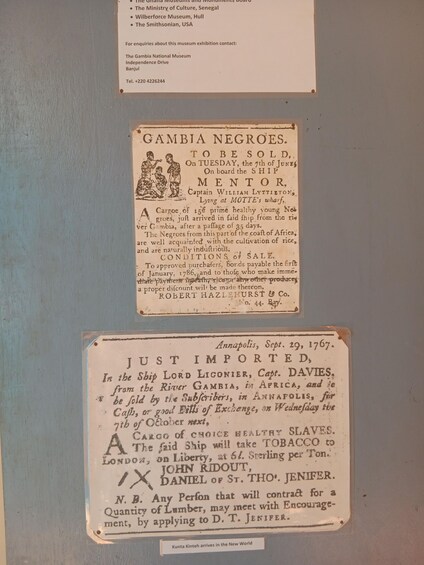 • The Ghana Museums and Monuments Board
• The Ministry of Culture, Senegal
• Wilberforce Museum, Hull
• The Smithsonian, USA
For enquiries about this museum exhibition contact:
The Gambia National Museum
Independence Drive
Banjul
Tel: +220 4226244
GAMBIA NEGROES.
TO BE SOLD,
On TUESDAY, the 7th of June,
On board the SHIP
MENTOR,
Captain WILLIAM LYTTLETON,
Lying at MOTTE's wharf,
A Cargoe of 152 prime healthy young Ne-
groes, just arrived in said ship from the ri-
ver Gambia, after a passage of 35 days.
The Negroes from this part of the coast of Africa,
are well acquainted with the cultivation of rice,
and are naturally industrious.
CONDITIONS of SALE.
To approved purchasers, bonds payable the first
of January, 1786, and to those who make imme-
diate payment in cash, rice or any other produce,
a proper discount will be made thereon.
ROBERT HAZLEHURST & Co.
No. 44, Bay.
Annapolis, Sept. 29, 1767.
JUST IMPORTED,
In the Ship LORD LIGONIER, Capt. DAVIES,
from the River GAMBIA, in AFRICA, and to
be sold by the Subscribers, in ANNAPOLIS, for
Cash, or good Bills of Exchange, on Wednesday the
7th of October next,
A CARGO OF CHOICE HEALTHY SLAVES.
The said Ship will take TOBACCO to
LONDON, on Liberty, at 6l. Sterling per Ton.
JOHN RIDOUT,
DANIEL OF ST. THOs. JENIFER.
N. B. Any Person that will contract for a
Quantity of Lumber, may meet with Encourage-
ment, by applying to D. T. JENIFER.
Kunta Kinteh arrives in the New World